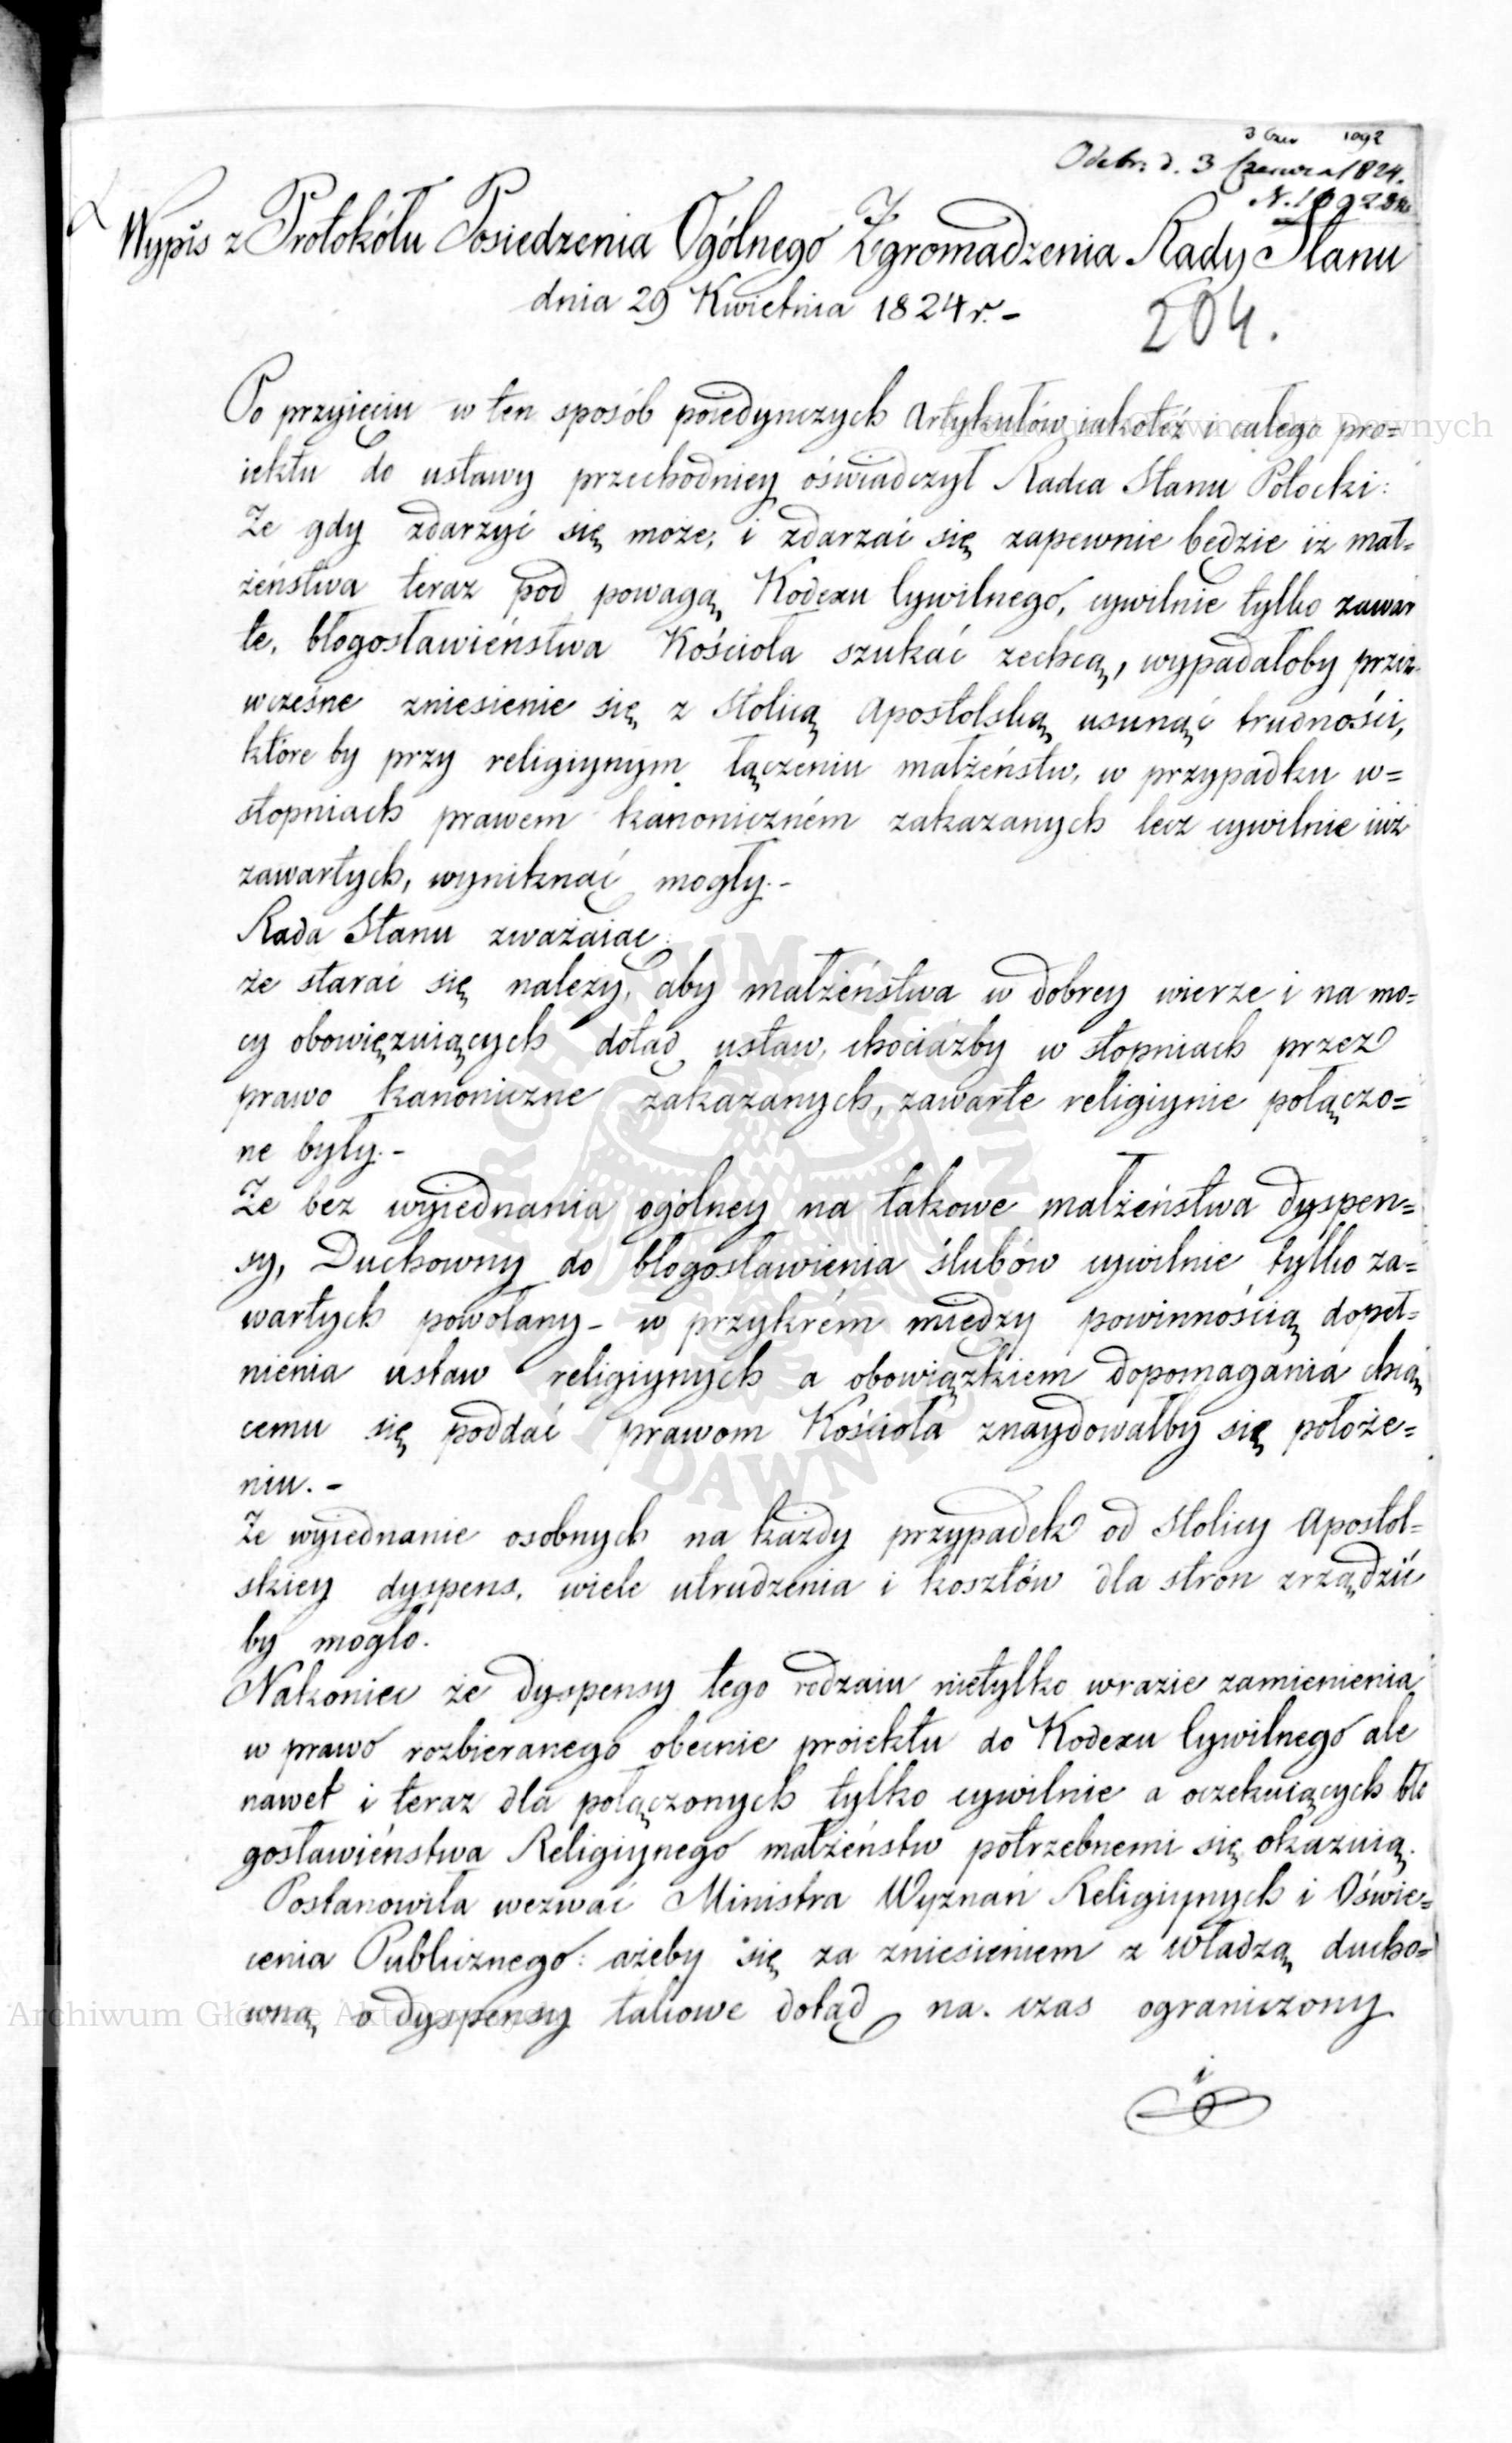 3 Czer 1092
Odebr: d. 3 Czerwca 1824.
N. 1092
Wypis z Protokółu Posiedzenia Ogólnego Zgromadzenia Rady Stanu
dnia 29 Kwietnia 1824 r. -
204.
Po przyięciu w ten sposób poiedynczych Artykułów iakoteż i całego pro=
iektu do ustawy przechodniey oświadczył Radca Stanu Potocki:
Że gdy zdarzyć się może, i zdarzać się zapewnie będzie iż mał=
żeństwa teraz pod powagą Kodexu Cywilnego, cywilnie tylko zawar
te, błogosławieństwa Kościoła szukać zechcą, wypadałoby przez
wczesne zniesienie się z Stolicą Apostolską usunąć trudności,
które by przy religiynym łączeniu małżeństw, w przypadku w=
stopniach prawem kanoniczném zakazanych lecz cywilnie iuż
zawartych, wyniknąć mogły. -
Rada Stanu zważaiąc:
że starać się należy, aby małżeństwa w dobrey wierze i na mo=
cy obowięzuiących dotąd ustaw, chociażby w stopniach przez
prawo kanoniczne zakazanych, zawarte religiynie połączo=
ne były. -
Że bez wyiednania ogólney na takowe małżeństwa dyspen=
sy, Duchowny do błogosławienia ślubów cywilnie tylko za=
wartych powołany - w przykrém między powinnością dopeł=
nienia ustaw religiynych a obowiązkiem dopomagania chcą
cemu się poddać prawom Kościoła znaydowałby się położe=
niu. -
Że wyiednanie osobnych na każdy przypadek od Stolicy Apostol=
skiey dyspens, wiele utrudzenia i kosztów dla stron zrządzić
by mogło.
Nakoniec że dyspensy tego rodzaiu nietylko wrazie zamienienia
w prawo rozbieranego obecnie proiektu do Kodexu Cywilnego ale
nawet i teraz dla połączonych tylko cywilnie a oczekuiących bło
gosławieństwa Religiynego małżeństw potrzebnemi się okazuią.
Postanowiła wezwać Ministra Wyznań Religiynych i Oświe=
cenia Publicznego: ażeby się za zniesieniem z władzą ducho=
wną o dyspensy takowe dotąd na czas ograniczony
i
Archiwum Główne Akt Dawnych